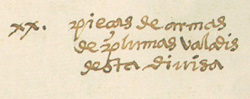 xx. piecas de armas
de plumas valadis
desta divisa